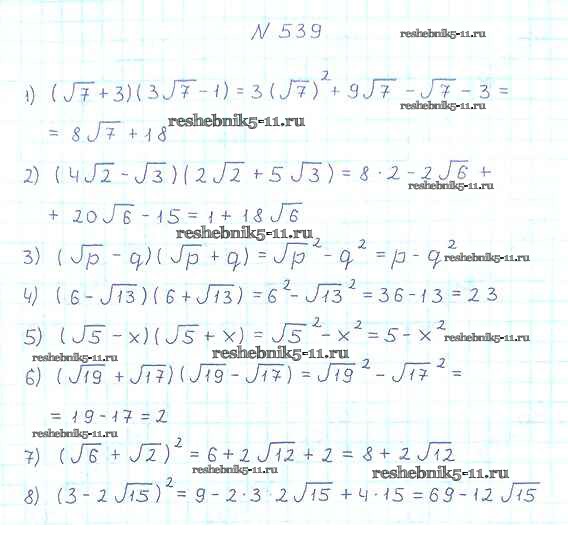 N 539
reshebnik5-11.ru
1) (√7 + 3)(3√7 - 1) = 3(√7)² + 9√7 - √7 - 3 =
reshebnik5-11.ru
= 8√7 + 18
reshebnik5-11.ru
2) (4√2 - √3)(2√2 + 5√3) = 8 · 2 - 2√6 +
reshebnik5-11.ru
+ 20√6 - 15 = 1 + 18√6
reshebnik5-11.ru
3) (√p - q)(√p + q) = √p² - q² = p - q²
reshebnik5-11.ru
4) (6 - √13)(6 + √13) = 6² - √13² = 36 - 13 = 23
5) (√5 - x)(√5 + x) = √5² - x² = 5 - x²
reshebnik5-11.ru
reshebnik5-11.ru
reshebnik5-11.ru
6) (√19 + √17)(√19 - √17) = √19² - √17² =
= 19 - 17 = 2
reshebnik5-11.ru
7) (√6 + √2)² = 6 + 2√12 + 2 = 8 + 2√12
reshebnik5-11.ru
reshebnik5-11.ru
8) (3 - 2√15)² = 9 - 2 · 3 · 2√15 + 4 · 15 = 69 - 12√15